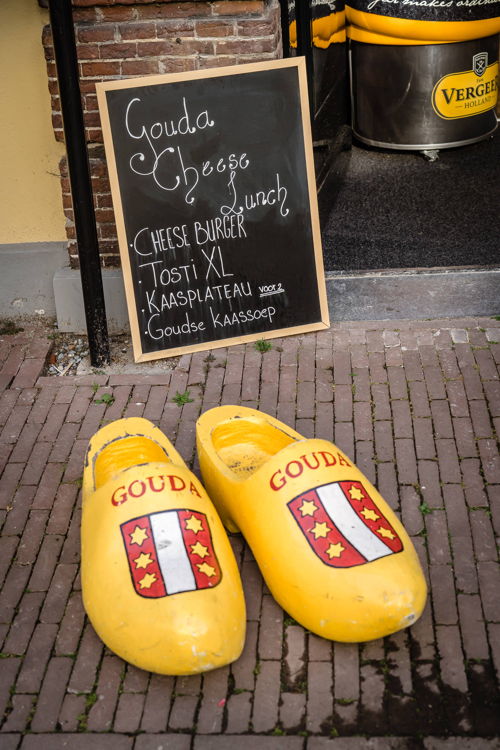 THE
VERGEER
HOLLAND
Gouda
Cheese
Lunch
· CHEESE BURGER
· Tosti XL
· KAASPLATEAU voor 2
· Goudse KAASSOEP
GOUDA
GOUDA